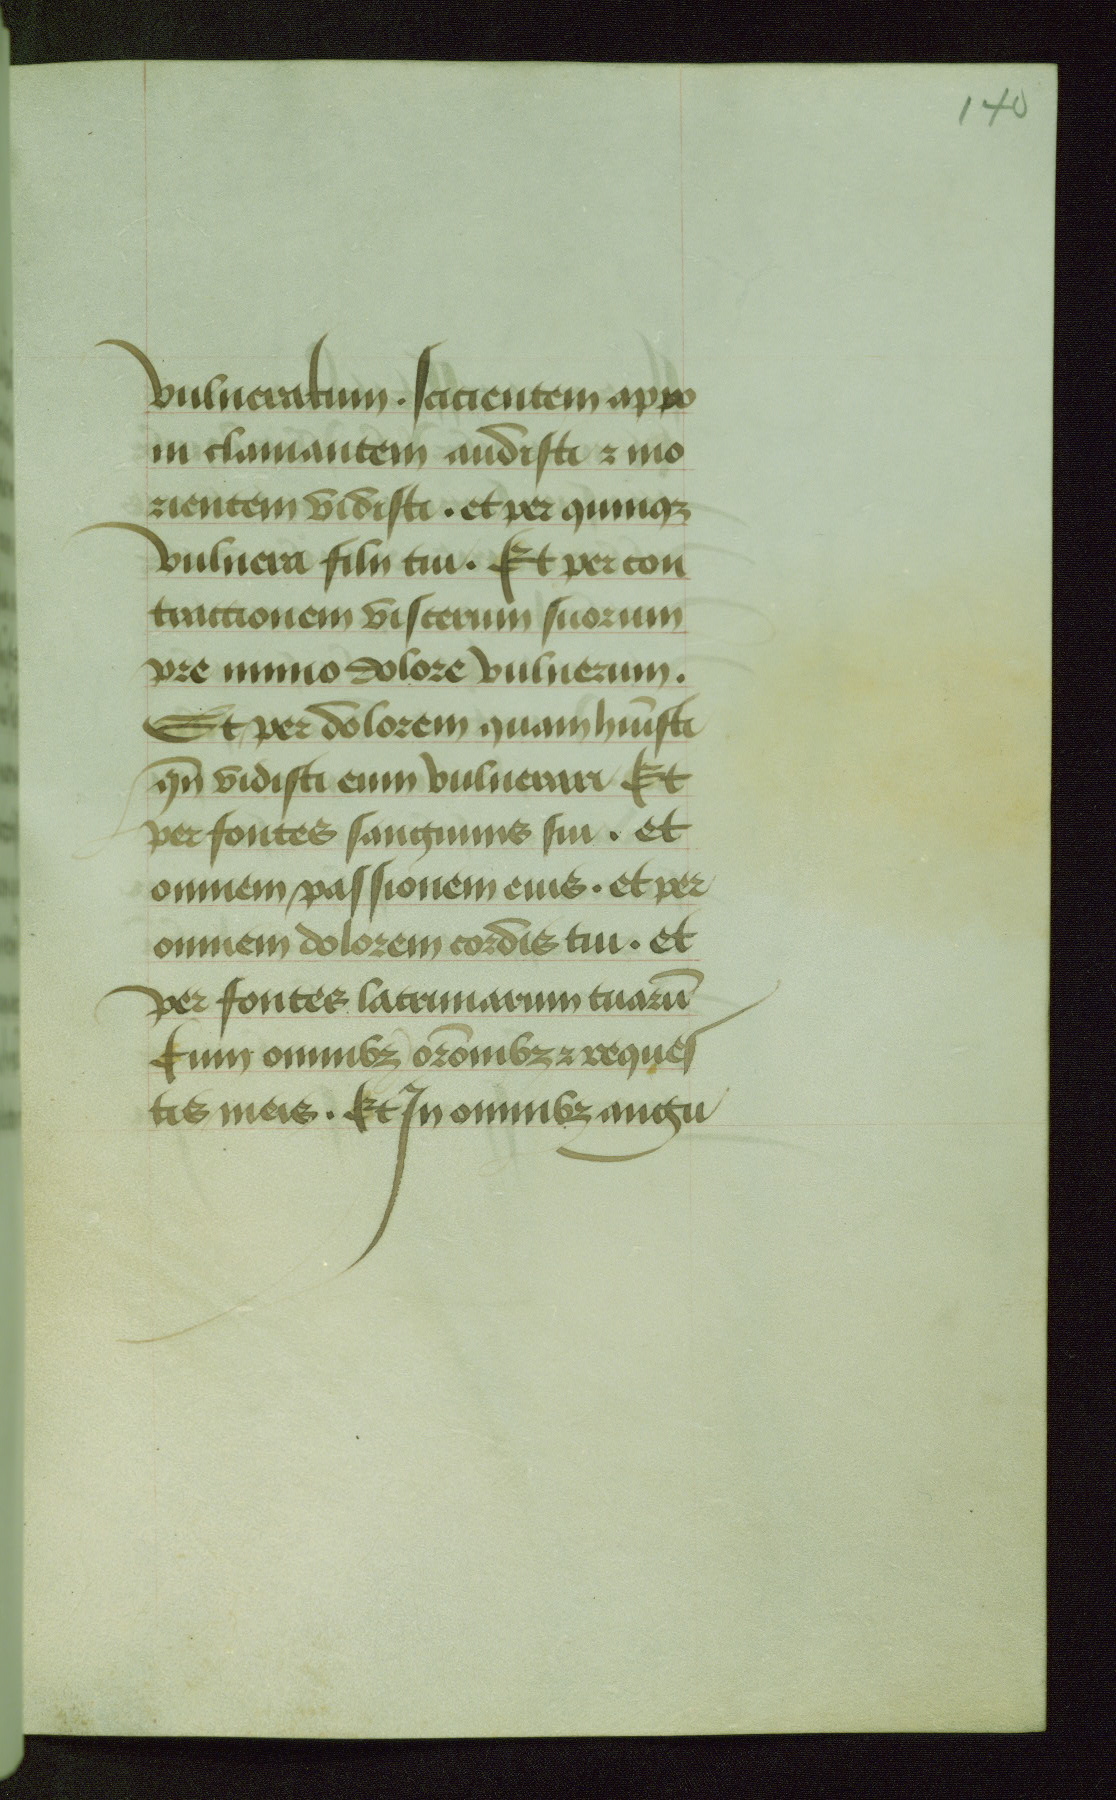 140
vulneratum . scicientem appo
ni clamantem audisti ⁊ mo
rientem vidisti . et per quinqꝫ
vulnera filii tui . Et per con
tractionem viscerum suorum
pre nimio dolore vulnerum .
Et per dolorem quam hūisti
qn̄ vidisti eum vulnerari Et
per fontes sanguinis sui . et
omnem passionem eius . et per
omnem dolorem cordis tui . et
per fontes lacrimarum tuarū
Cum omnibꝫ or̄onibꝫ ⁊ reques
tis meis . Et In omnibꝫ angu